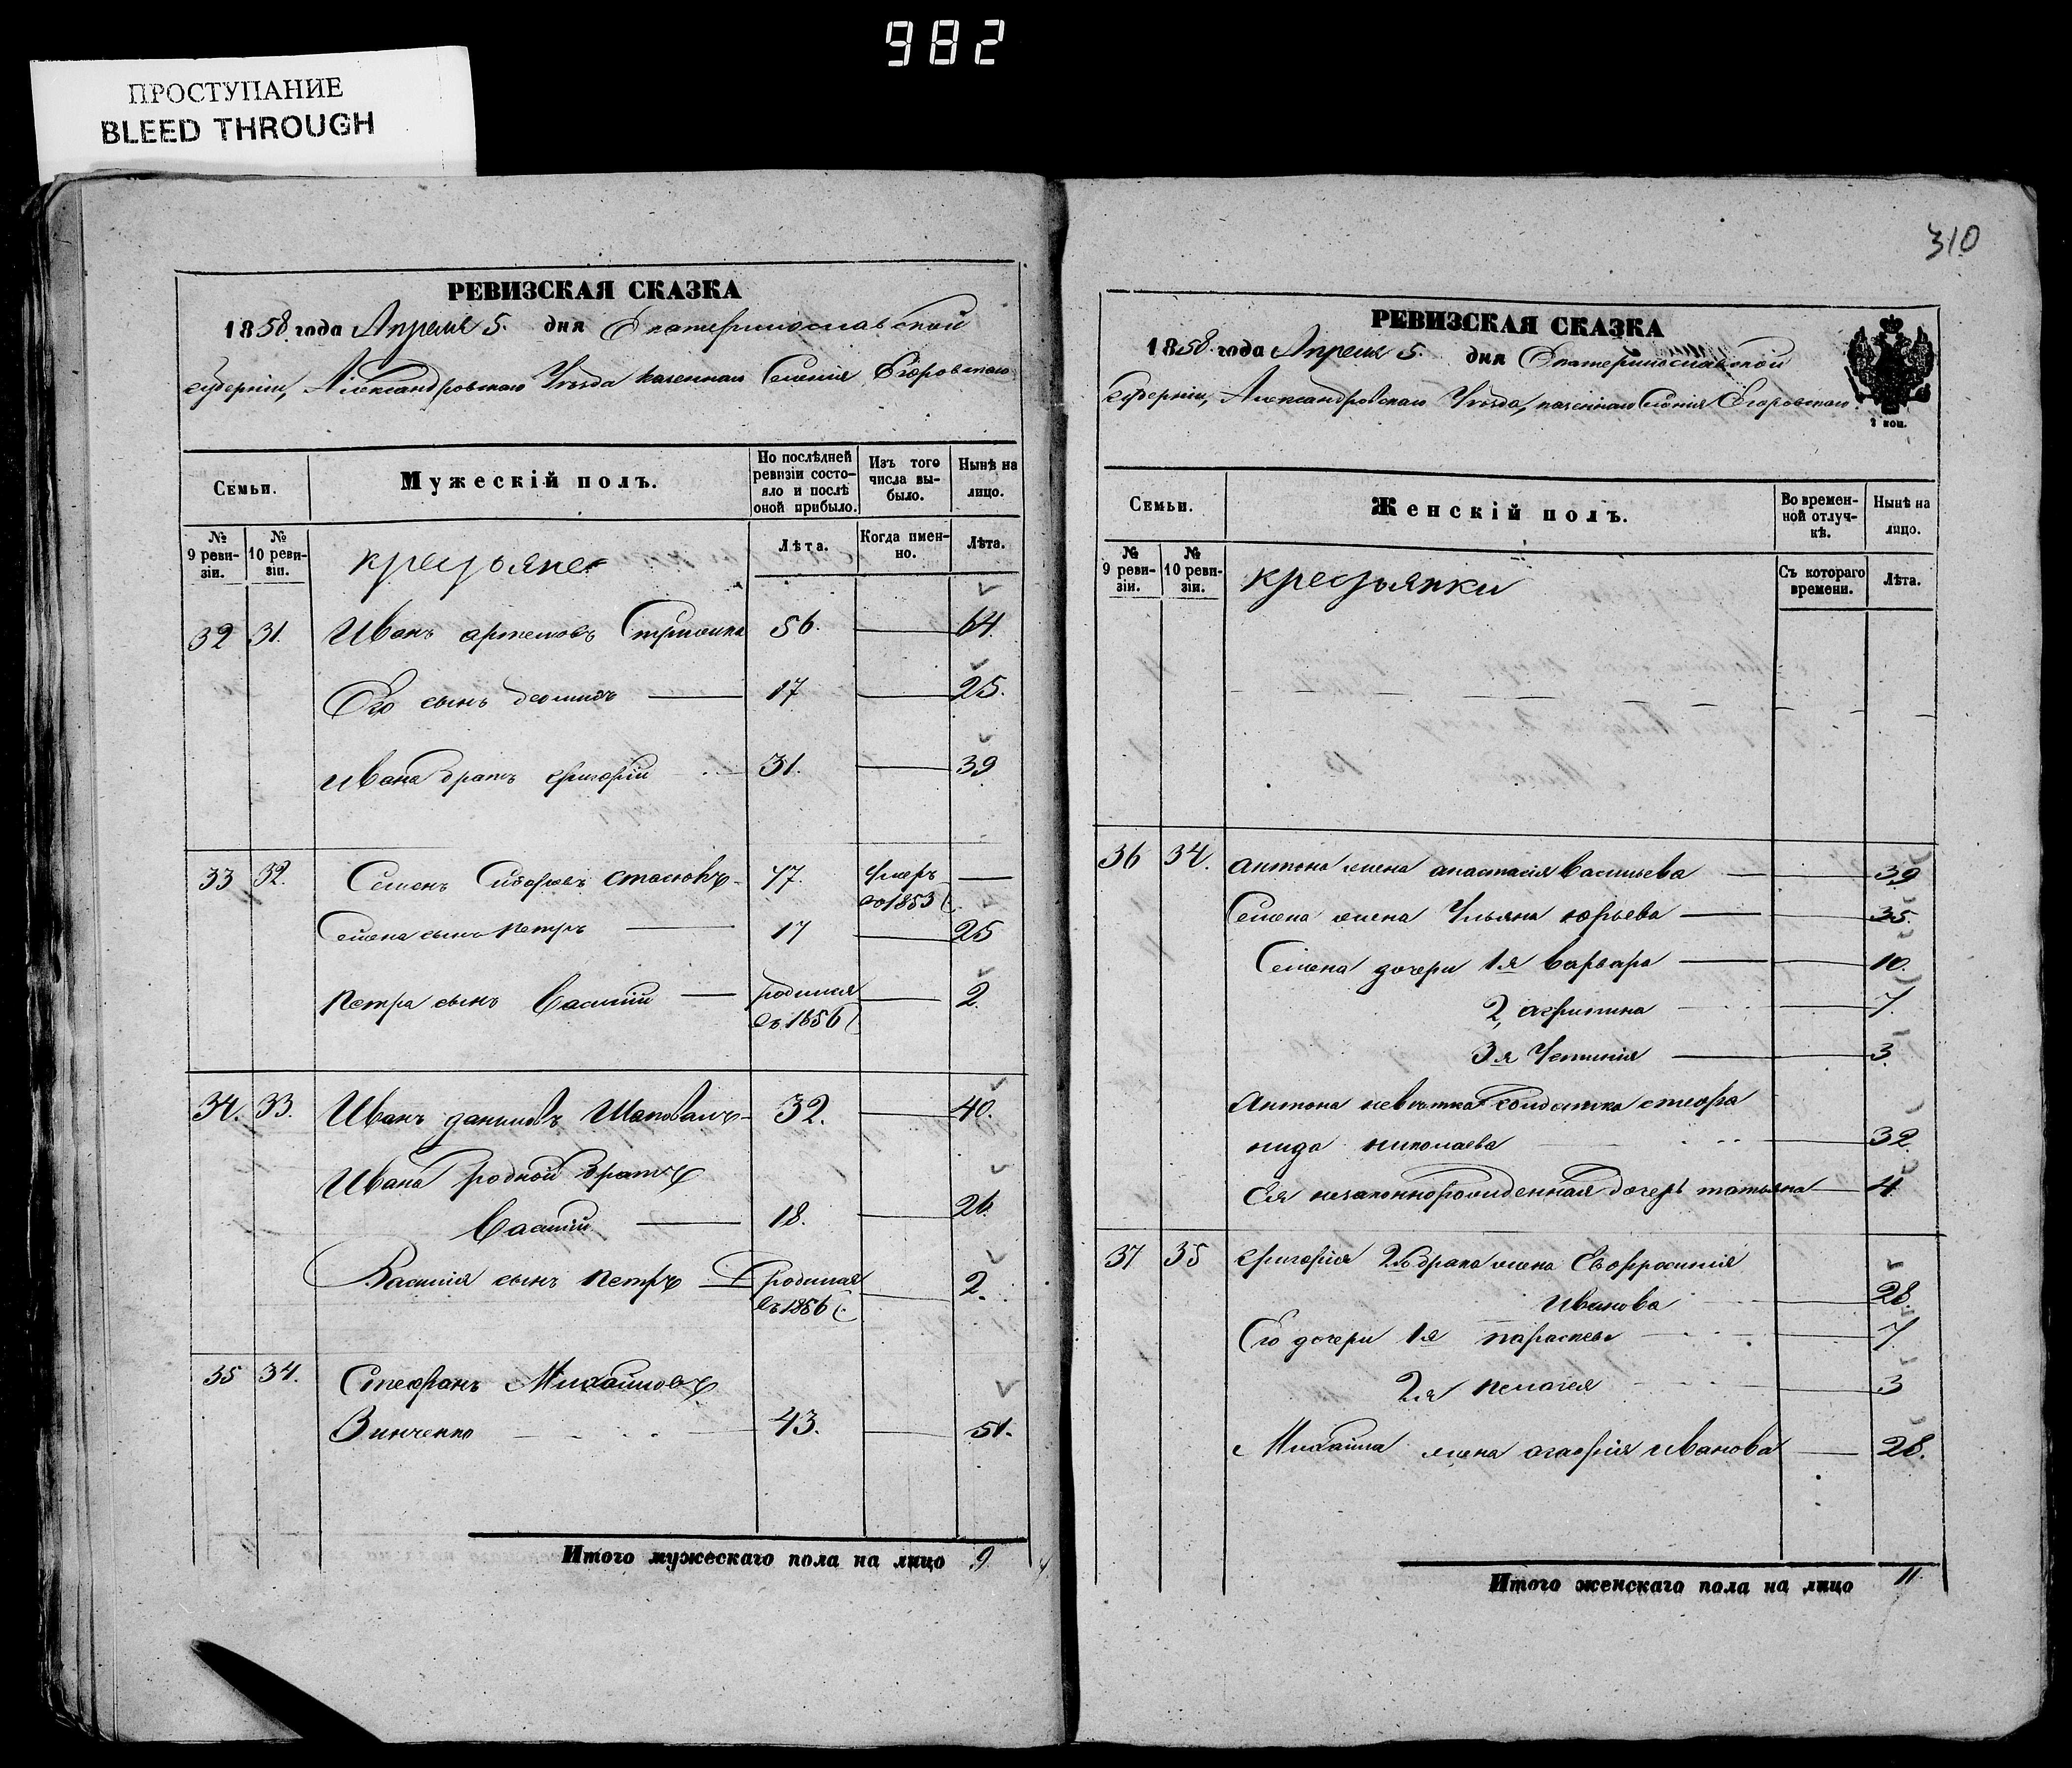 982
ПРОСТУПАНИЕ
BLEED THROUGH
РЕВИЗСКАЯ СКАЗКА
1858 года Апреля 5. дня Екатеринославской
губернiи, Александровскаго Уѣзда казеннаго Селенiя Егоровскаго
Семьи.
Мужескiй полъ.
По послѣдней ревизiи состояло и послѣ оной прибыло.
Изъ того числа выбыло.
Нынѣ на лицо.
№ 9 ревизiи.
№ 10 ревизiи.
крестьяне
Лѣта.
Когда именно.
Лѣта.
32 31. Иванъ артемовъ 56. 64.
Его сынъ 17 25.
Ивана братъ григорiй 31. 39
33 32. Семенъ Сидоровъ стасюкъ 47. умеръ
въ 1853
Семена сынъ петръ 17 25
петра сынъ Василiй родился 2.
въ 1856
34. 33. Иванъ даниловъ Шаповалъ 32. 40.
Ивана родной братъ
Василiй 18. 26.
Василiя сынъ петръ родился 2.
въ 1856
35 34. Стефанъ Михайловъ
Винченко 43. 51.
Итого мужескаго пола на лицо 9
310
РЕВИЗСКАЯ СКАЗКА
1858 года Апреля 5. дня Екатеринославской
губернiи, Александровскаго Уѣзда, казеннаго Селенiя Егоровскаго
2 коп.
Семьи.
Женскiй полъ.
Во временной отлучкѣ.
Нынѣ на лицо.
№ 9 ревизiи.
№ 10 ревизiи.
крестьянки
Съ котораго времени.
Лѣта.
36 34. антона жена анастасiя Васильева 39
Семена жена Ульяна юрьева 35.
Семена дочери 1я варвара 10.
2, агрипина 7.
3я Устинiя 3.
Антона невѣстка солдатка стефа
нида николаева 32
Ея незаконнорожденная дочерь татьяна 4.
37 35 григорiя 2го брака жена Евфросинiя
Иванова 28.
Его дочери 1я параскева 7.
2я пелагея 3
Михайла жена агафiя иванова 28.
Итого женскаго пола на лицо 11